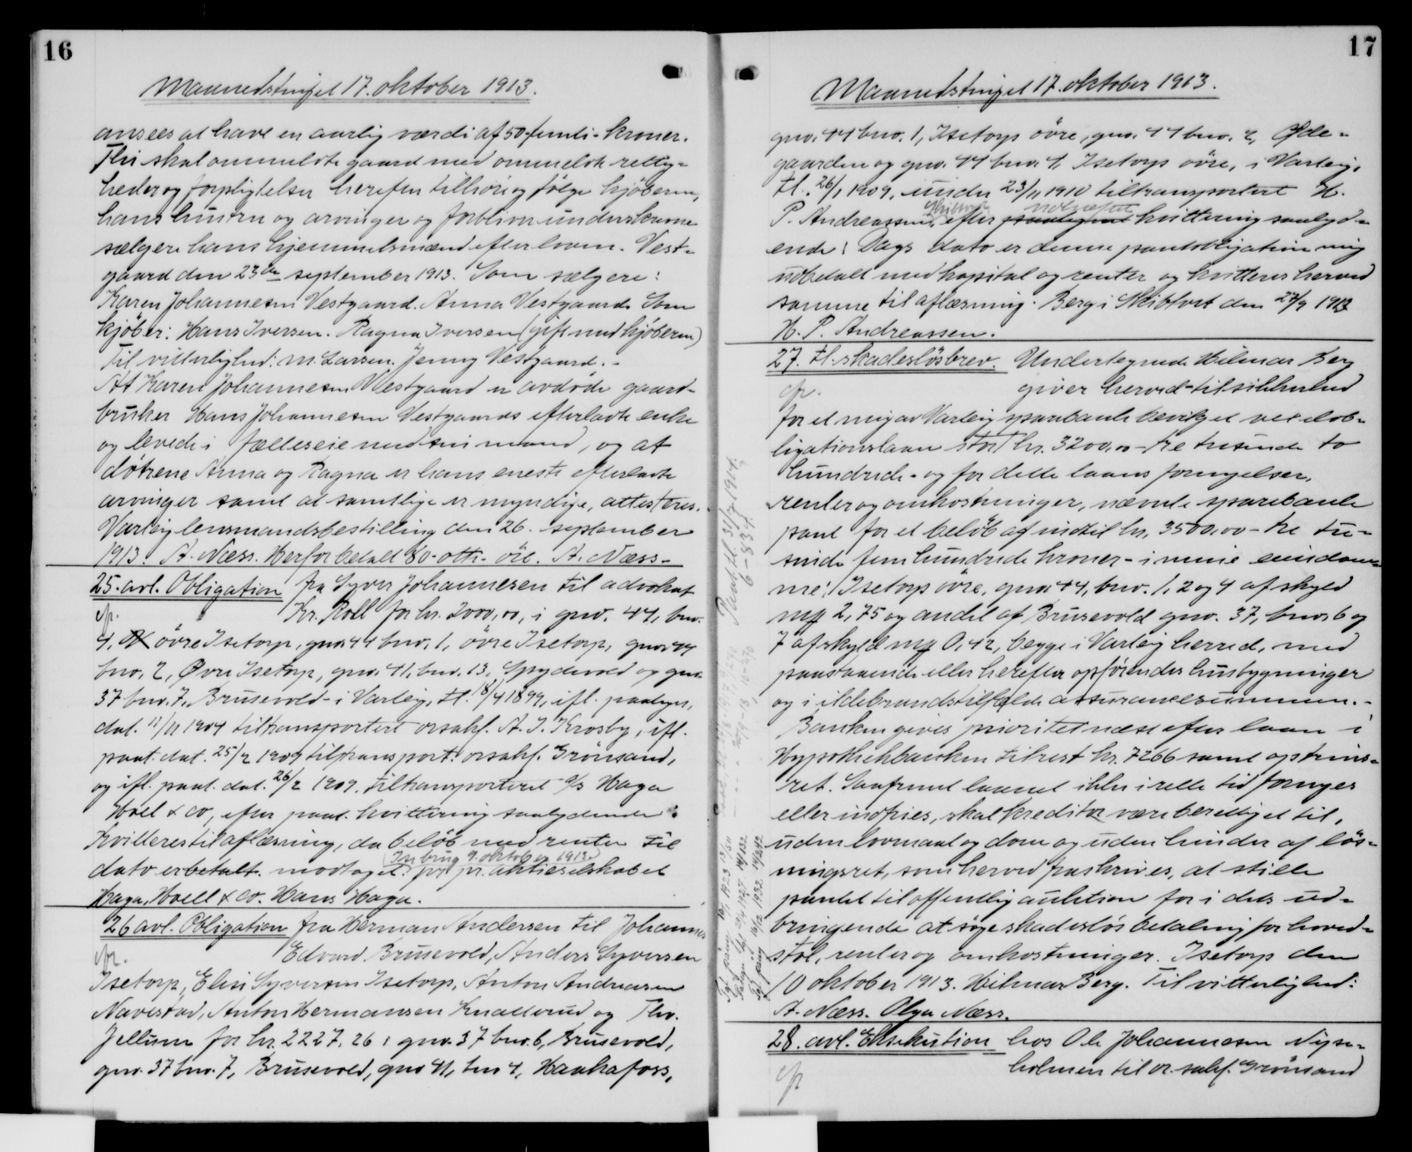 16
Maanedstinget 17. oktober 1913.
ansees at have en aarlig værdi af 50-femti-kroner.
Thi skal ommeldte gaard med ommeldte rettig-
heder og forpligtelser herefter tilhøre og følge kjøberen,
hans hustru og arvinger og forbliver underskrevne
sælgere hans hjemmelsmænd efter loven. Vest-
gaard den 23de september 1913. Som sælgere:
Karen Johannesen Vestgaard. Anna Vestgaard. Som
kjøber: Hans Iversen. Ragna Iversen (gift med kjøberen)
Til vitterlighed: M. Larsen. Jenny Vestgaard.-
At Karen Johannesen Vestgaard er avdøde gaard-
bruker Hans Johannesen Vestgaards efterladte enke
og levede i fælleseie med sin mand, og at
døtrene Anna og Ragna er hans eneste efterladte
arvinger samt at samtlige er myndige, attesteres.
Varteig lensmandsbestilling den 26. september
1913. A. Næss. Herfor betalt 80-otti-øre. A. Næss-
25. avl. Obligation fra Syver Johannesen til advokat
Kr. Roll for kr. 2000,00, i gno. 44, bno.
4, øvre Isetorp, gno. 44 bno. 1, øvre Isetorp, gno. 44
bno. 2, Øvre Isetorp, gno. 41, bno. 13, Spydevold og gno.
37 bno. 7, Brusevold- i Varteig, tl. 18/4 1899, ifl. paategn.
dat. 11/11 1904 tiltransportert orsakf. A. J. Krosby, ifl.
paat. dat. 25/2 1909 tiltransport. orsakf. Grönsand,
og ifl. paat. dat. 26/2 1909. tiltransporteret a/s Haga
Woll & co, efter paat. kvittering saalydende:
Kvitteres til aflæsning, da beløb med renter til
Isebrug 9. oktober 1913
dato er betalt. mottaget. pr. pr. aktieselskabet
Haga, Woell & co. Hans Haga.
26 avl. Obligation fra Herman Andersen til Johannes
Edvard Brusevold, Anders Syversen
Isetorp, Elise Syversen Isetorp, Anton Andreasen
Navestad, Anton Hermansen Knatterud og Thv.
Jellum for kr. 2227,26 i gno. 37 bno. 6, Brusevold,
gno. 37 bno. 7, Brusevold, gno 41, bno 4, Haukafoss,
17
Maanedstinget 17. oktober 1913.
gno. 44 bno. 1, Isetorp øvre, gno. 44 bno. 2, Øde-
gaarden og gno. 44 bno. 4, Isetorp øvre, i Varteig,
tl. 26/1 1909, under 23/11 1910 tiltransportert H.
P. Andreassen, efter kvittering saalyd-
ende: Dags dato er denne pantobligation mig
udbetalt med kapital og renter og kvitteres herved
samme til aflæsning. Berg i Skibtvet den 24/9 1913
H. P. Andreassen.
27. tl. skadesløsbrev. Undertegnede Hilmar Berg
giver herved til sikkerhed
for et mig av Varteig sparebank bevilget vekselob-
ligationslaan stort kr. 3200,00 - tre tusinde to
hundrede - og for dette laans fornyelser,
renter og omkostninger, nævnte sparebank
pant for et beløb af indtil kr. 3500,00 - tre tu-
sinde fem hundrede kroner - i mine eiendom-
me: Isetorp øvre, gno. 44, bno. 1, 2 og 4 af skyld
mrk 2,75 og andel af Brusevold gno. 37, bno. 6 og
7 af skyld mrk 0,42, begge i Varteig herred, med
paastaaende eller herefter opførendes husbygninger
og i ildebrandstilfælde assurancesummen.-
Banken gives prioritet næst efter laan i
Hypothekbanken til rest kr. 7266 samt optrins-
ret. Saafremt laanet ikke i rette tid fornyes
eller indfries, skal kreditor være berettiget til,
uden lovmaal og dom og uden hinder af løs-
ningsret, som herved fraskrives, at stille
pantet til offentlig auktion for i dets ud-
bringende at søge skadesløs betaling for hoved-
stol, renter og omkostninger. Isetorp den
10 oktober 1913. Hilmar Berg. Til vitterlighed:
A. Næss. Olga Næss.
28. avl. Eksekution hos Ole Johannesen Nyse-
holmen til or. sakf. Grönsand